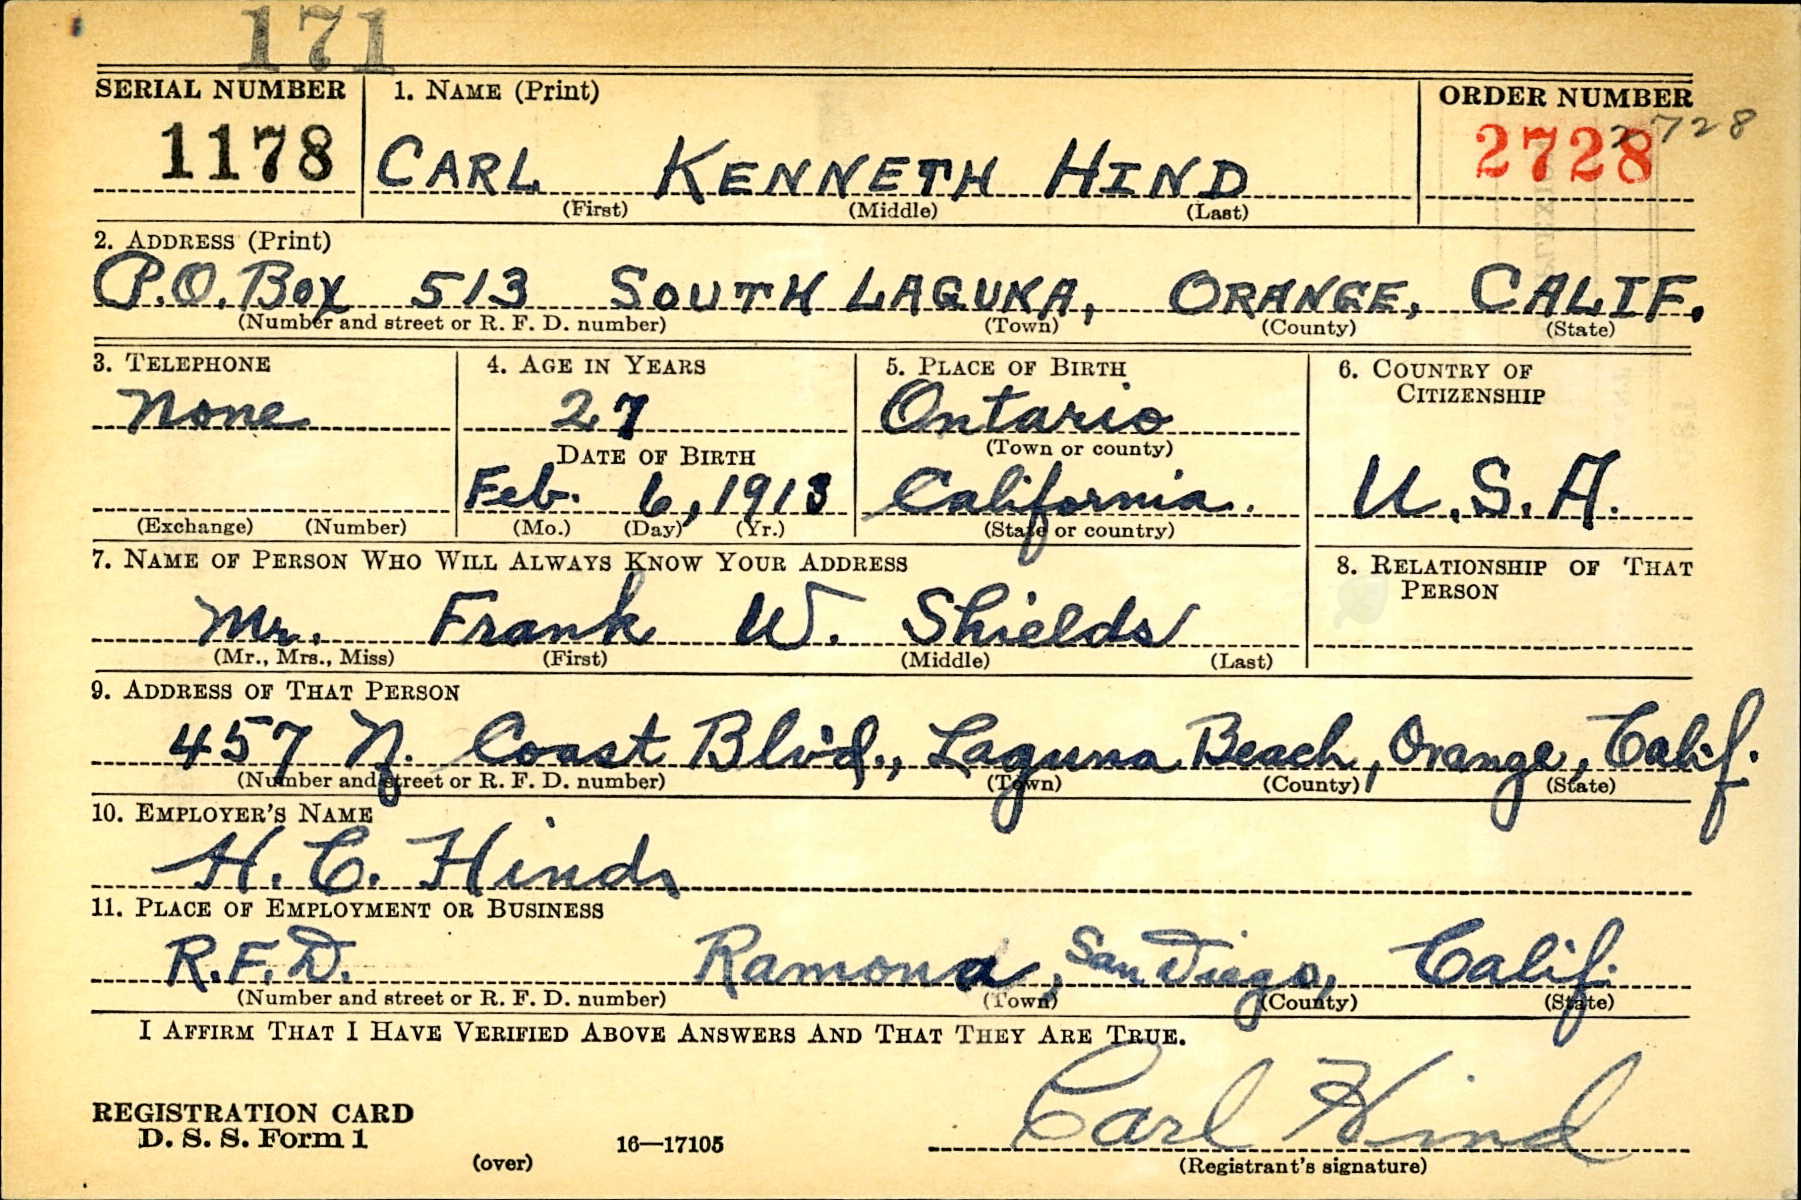 171
SERIAL NUMBER 1. NAME (Print) ORDER NUMBER
1178 CARL KENNETH HIND 2728 2728
(First) (Middle) (Last)
2. ADDRESS (Print)
P.O. Box 513 SOUTH LAGUNA, ORANGE, CALIF.
(Number and street or R. F. D. number) (Town) (County) (State)
3. TELEPHONE 4. AGE IN YEARS 5. PLACE OF BIRTH 6. COUNTRY OF
CITIZENSHIP
None 27 Ontario
DATE OF BIRTH (Town or county)
Feb. 6, 1913 California. U.S.A.
(Exchange) (Number) (Mo.) (Day) (Yr.) (State or country)
7. NAME OF PERSON WHO WILL ALWAYS KNOW YOUR ADDRESS 8. RELATIONSHIP OF THAT
PERSON
Mr. Frank W. Shields
(Mr., Mrs., Miss) (First) (Middle) (Last)
9. ADDRESS OF THAT PERSON
457 N. Coast Blvd., Laguna Beach, Orange, Calif.
(Number and street or R. F. D. number) (Town) (County) (State)
10. EMPLOYER'S NAME
H. C. Hind
11. PLACE OF EMPLOYMENT OR BUSINESS
R.F.D. Ramona, San Diego, Calif.
(Number and street or R. F. D. number) (Town) (County) (State)
I AFFIRM THAT I HAVE VERIFIED ABOVE ANSWERS AND THAT THEY ARE TRUE.
Carl Hind
REGISTRATION CARD
D. S. S. Form 1 16—17105
(over) (Registrant's signature)